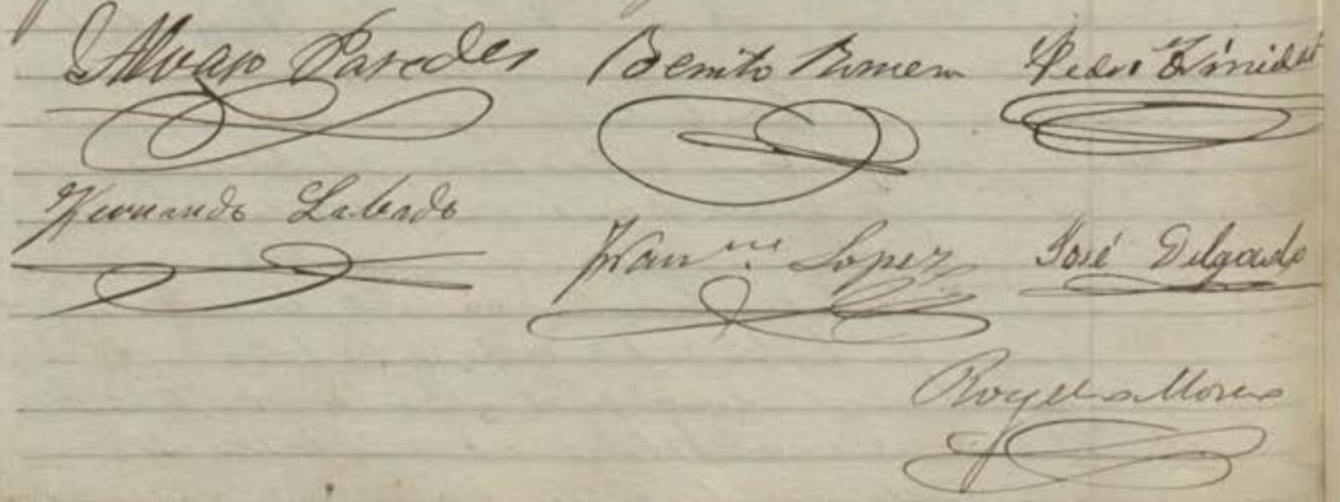 Alvaro Paredes Benito Romero Pedro
Fernando Labado
Fran.co Lopez José Delgado
Rogelio Moreno